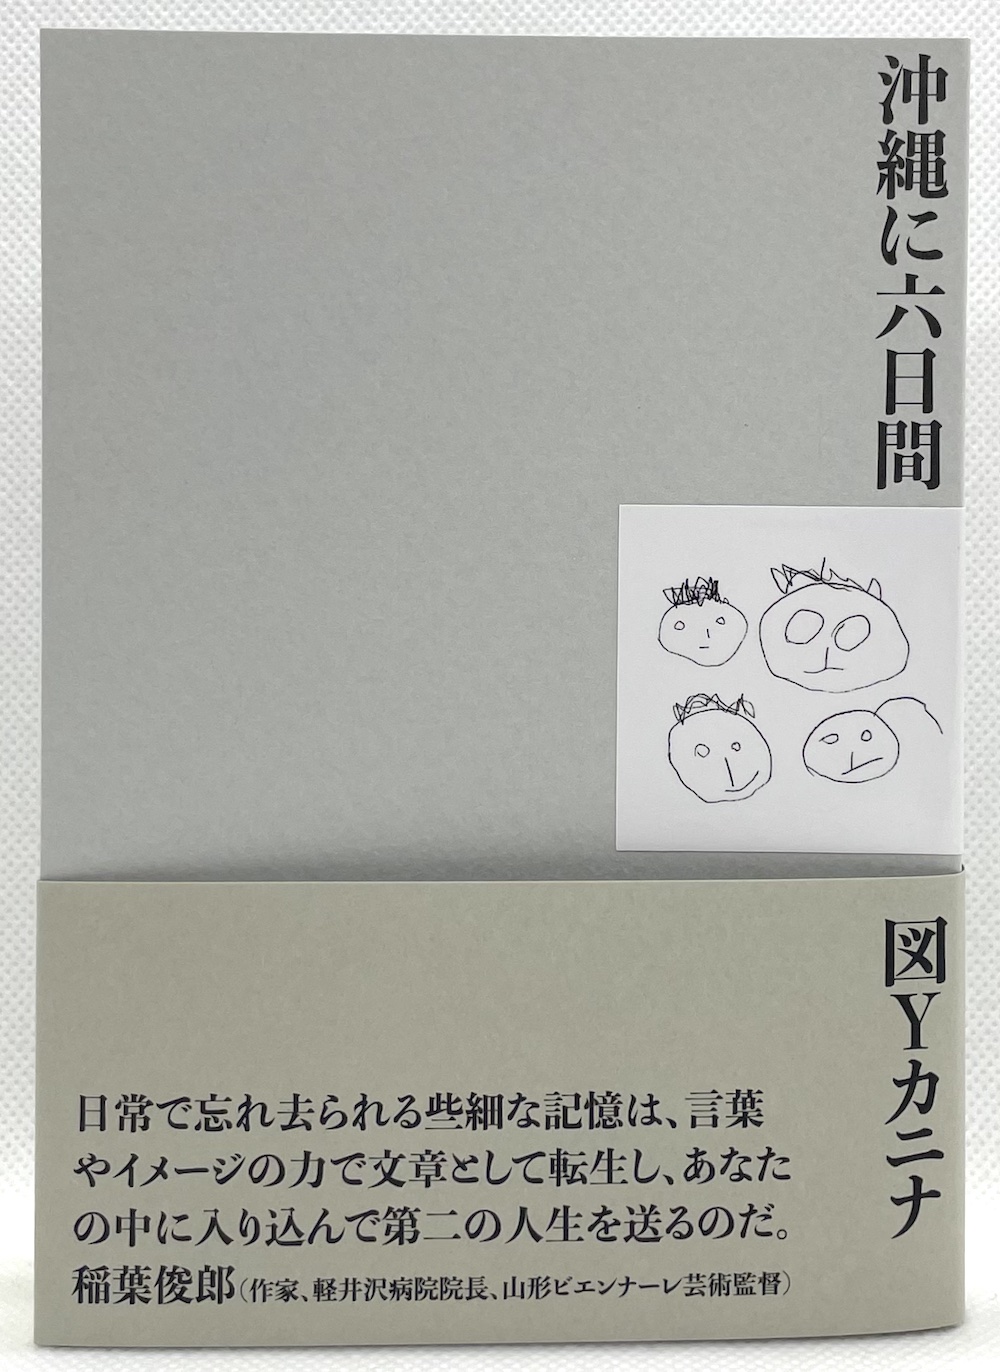 沖縄に六日間
図Yカニナ
日常で忘れ去られる些細な記憶は、言葉
やイメージの力で文章として転生し、あなた
の中に入り込んで第二の人生を送るのだ。
稲葉俊郎（作家、軽井沢病院院長、山形ビエンナーレ芸術監督）